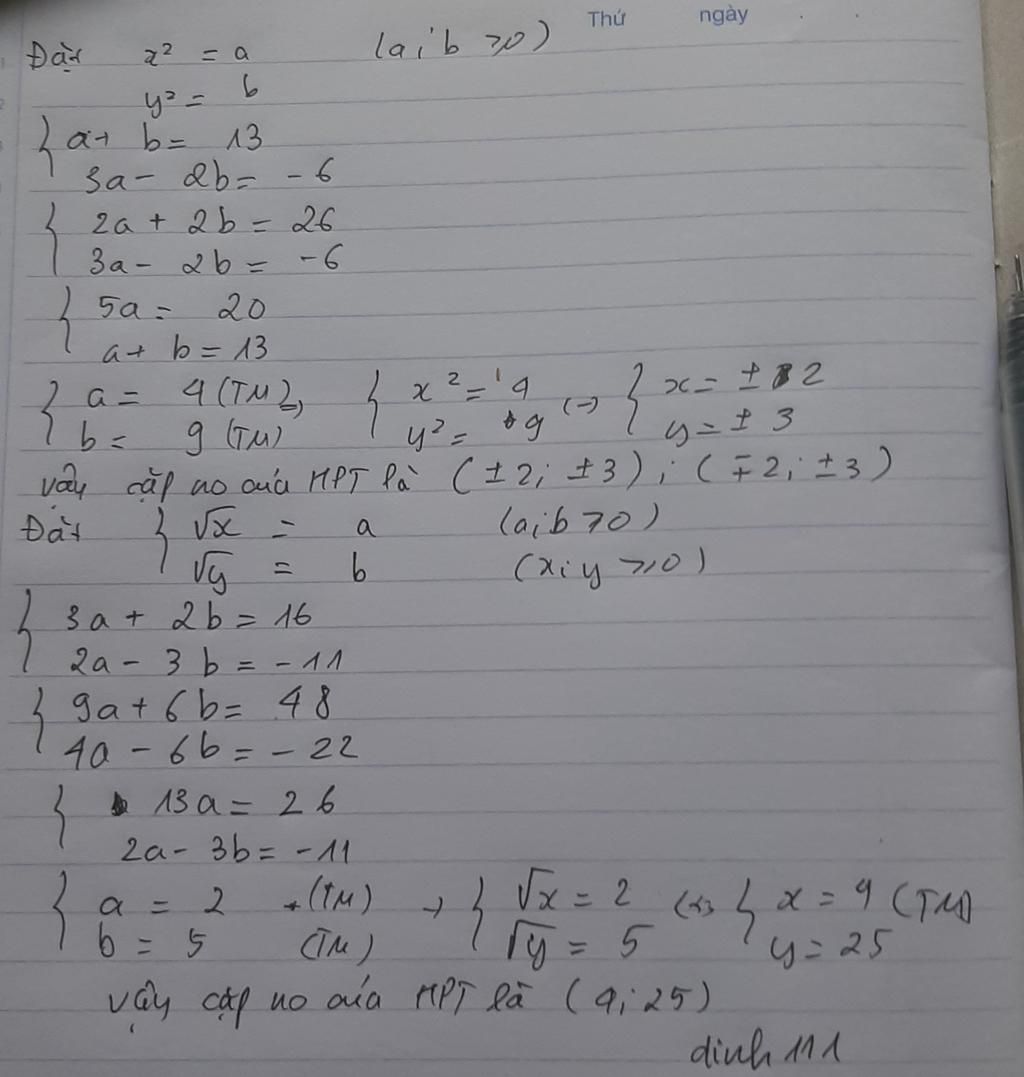 Thứ ngày
Đặt x² = a (a; b ≥ 0)
y² = b
{ a + b = 13
3a - 2b = -6
{ 2a + 2b = 26
3a - 2b = -6
{ 5a = 20
a + b = 13
{ a = 4 (TM) => { x² = 4 <=> { x = ± 2
b = 9 (TM) y² = 9 y = ± 3
vậy cặp no của HPT là (±2; ±3); (∓2; ±3)
Đặt { √x = a (a; b ≥ 0)
√y = b (x; y ≥ 0)
{ 3a + 2b = 16
2a - 3b = -11
{ 9a + 6b = 48
4a - 6b = -22
{ 13a = 26
2a - 3b = -11
{ a = 2 (TM) → { √x = 2 <=> { x = 4 (TM)
b = 5 (TM) √y = 5 y = 25
vậy cặp no của HPT là (4; 25)
dinh 111